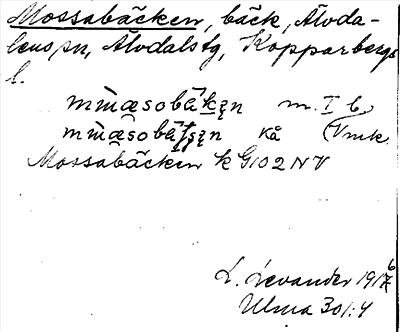 Mossabäcken, bäck, Älvda-
lens sn, Älvdalstg, Kopparbergs
l.
m. I b
kå Vmk.
Mossabäcken k G102NV
L. Levander 1916
Ulma 301:4